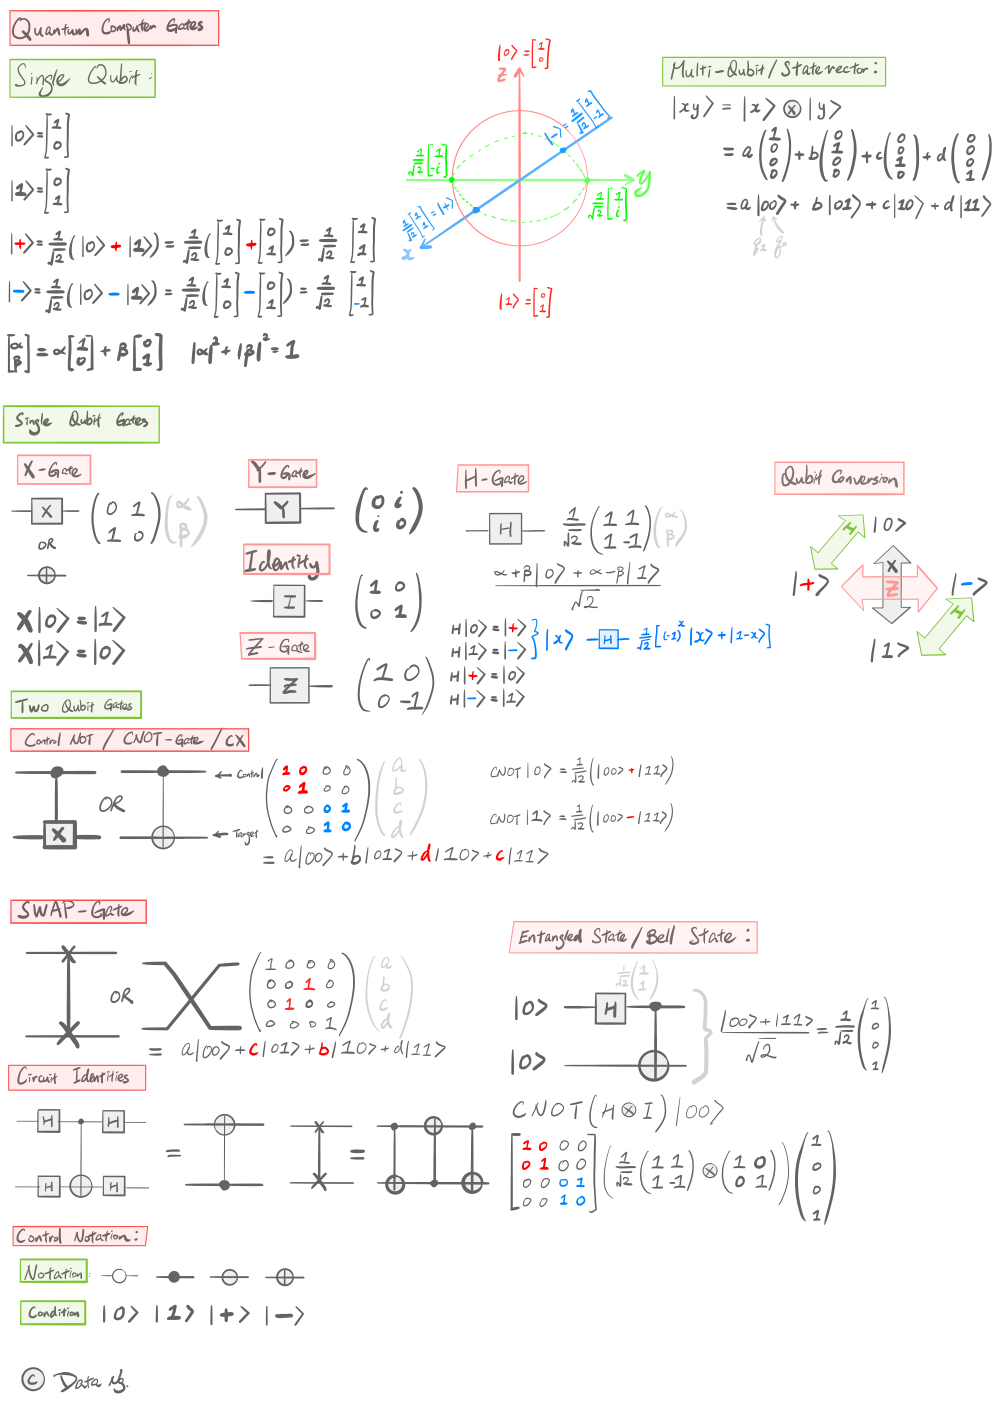 Quantum Computer Gates
Single Qubit:
|0> = [1 0]
|1> = [0 1]
|+> = 1/√2 (|0> + |1>) = 1/√2 ([1 0] + [0 1]) = 1/√2 [1 1]
|-> = 1/√2 (|0> - |1>) = 1/√2 ([1 0] - [0 1]) = 1/√2 [1 -1]
[α β] = α[1 0] + β[0 1] |α|² + |β|² = 1
|0> = [1 0]
z
1/√2 [1 1] = |->
1/√2 [1 -i]
y
1/√2 [1 i]
1/√2 [1 1] = |+>
x
|1> = [0 1]
Multi-Qubit/Statevector:
|xy> = |x> ⊗ |y>
= a(1 0 0 0) + b(0 1 0 0) + c(0 0 1 0) + d(0 0 0 1)
= a|00> + b|01> + c|10> + d|11>
q1 q0
Single Qubit Gates
X-Gate
X (0 1 1 0)(α β)
OR
X|0> = |1>
X|1> = |0>
Y-Gate
Y (0 i i 0)
Identity
I (1 0 0 1)
Z-Gate
Z (1 0 0 -1)
H-Gate
H 1/√2 (1 1 1 -1)(α β)
α+β|0> + α-β|1>
√2
H|0> = |+>
H|1> = |->
|x> H 1/√2 [(-1)^x |x> + |1-x>]
H|+> = |0>
H|-> = |1>
Qubit Conversion
|0>
H
X
|+> Z |->
H
|1>
Two Qubit Gates
Control NOT / CNOT-Gate / CX
X
OR
← Control
← Target
(1 0 0 0
0 1 0 0
0 0 0 1
0 0 1 0)
(a b c d)
= a|00> + b|01> + d|10> + c|11>
CNOT|0> = 1/√2 (|00> + |11>)
CNOT|1> = 1/√2 (|00> - |11>)
SWAP-Gate
OR
(1 0 0 0
0 0 1 0
0 1 0 0
0 0 0 1)
(a b c d)
= a|00> + c|01> + b|10> + d|11>
Entangled State/Bell State:
1/√2 (1 1)
|0> H
|0>
|00> + |11> / √2 = 1/√2 (1 0 0 1)
CNOT(H⊗I)|00>
[1 0 0 0
0 1 0 0
0 0 0 1
0 0 1 0]
(1/√2 (1 1 1 -1) ⊗ (1 0 0 1)) (1 0 0 1)
Circuit Identities
H H
= =
H H
Control Notation:
Notation:
Condition |0> |1> |+> |->
© Data